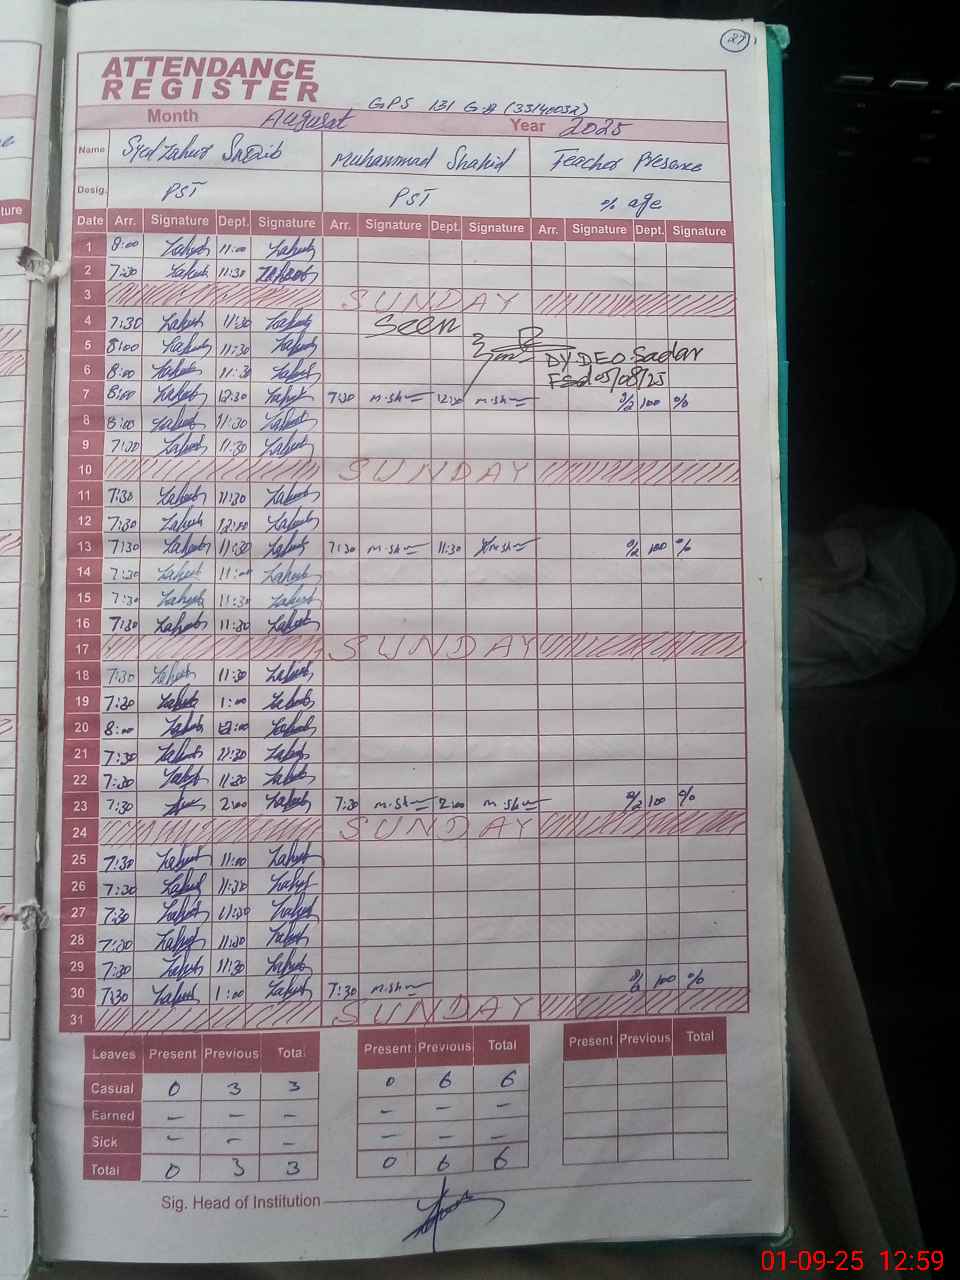 27
ATTENDANCE
REGISTER
GPS 131 G.B (33140032)
Month August Year 2025
Name Syed Zahur Muhammad Shahid Teacher Presence
Desig. PST PST % age
Date Arr. Signature Dept. Signature Arr. Signature Dept. Signature Arr. Signature Dept. Signature
1 8:00 Zahur 11:00 Zahur
2 7:30 Zahur 11:30 Zahur
3 SUNDAY
4 7:30 Zahur 11:30 Zahur Seen
5 8:00 Zahur 11:30 Zahur DY DEO. Sadar
6 8:00 Zahur 11:30 Zahur FSd 05/08/25
7 8:00 Zahur 12:30 Zahur 7:30 m.sh 12:30 m.sh 2/2 100 %
8 8:00 Zahur 11:30 Zahur
9 7:30 Zahur 11:30 Zahur
10 SUNDAY
11 7:30 Zahur 11:30 Zahur
12 7:30 Zahur 12:00 Zahur
13 7:30 Zahur 11:30 Zahur 7:30 m.sh 11:30 m.sh 2/2 100 %
14 7:30 Zahur 11:00 Zahur
15 7:30 Zahur 11:30 Zahur
16 7:30 Zahur 11:30 Zahur
17 SUNDAY
18 7:30 Zahur 11:30 Zahur
19 7:30 Zahur 1:00 Zahur
20 8:00 Zahur 12:00 Zahur
21 7:30 Zahur 11:30 Zahur
22 7:30 Zahur 11:30 Zahur
23 7:30 2:00 Zahur 7:30 m.sh 2:00 m.sh 2/2 100 %
24 SUNDAY
25 7:30 Zahur 11:00 Zahur
26 7:30 Zahur 11:30 Zahur
27 7:30 Zahur 11:30 Zahur
28 7:30 Zahur 11:30 Zahur
29 7:30 Zahur 11:30 Zahur
30 7:30 Zahur 1:00 Zahur 7:30 m.sh 2/2 100 %
31 SUNDAY
Leaves Present Previous Total Present Previous Total Present Previous Total
Casual 0 3 3 0 6 6
Earned – – – – – –
Sick – – – – – –
Total 0 3 3 0 6 6
Sig. Head of Institution
01-09-25 12:59